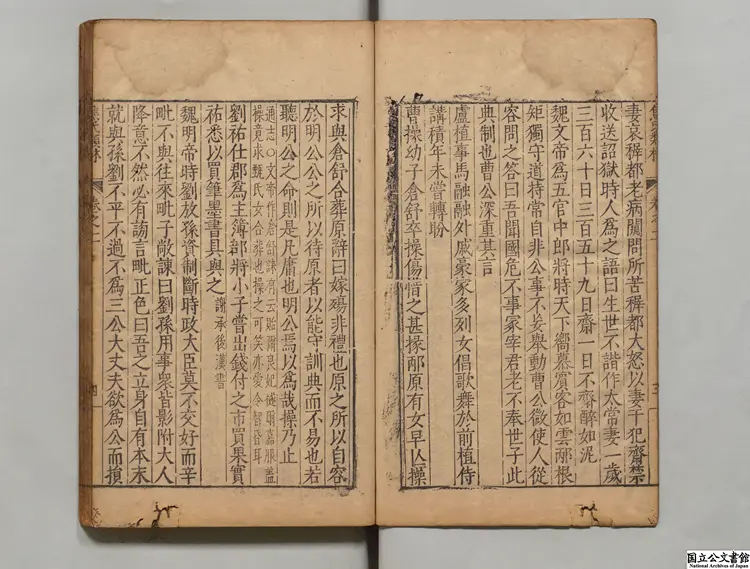 妻哀稺都老病闚問所苦稺都大怒以妻干犯齋禁
收送詔獄時人爲之語曰生世不諧作太常妻一歲
三百六十日三百五十九日齋一日不齋醉如泥
魏文帝爲五官中郎將時天下嚮慕賓客如雲邴根
矩獨守道持常自非公事不妄舉動曹公微使人從
容問之答曰吾聞國危不事冢宰君老不奉世子此
典制也曹公深重其言
盧植事馬融融外戚豪家多列女倡歌舞於前植侍
講積年未嘗轉眄
曹操幼子倉舒卒操傷惜之甚掾邴原有女早亾操
求與倉舒合葬原辭曰嫁殤非禮也原之所以自容
於明公公之所以待原者以能守訓典而不易也若
聽明公之命則是凡庸也明公焉以爲哉操乃止
通志○文帝作倉舒誄亦云貽爾良妃襚爾嘉服蓋
操竟求甄氏女合葬也操之可笑亦愛令智昏耳
劉祐仕郡爲主簿郡將小子嘗出錢付之市買果實
祐悉以買筆墨書具與之 謝承後漢書
魏明帝時劉放孫資制斷時政大臣莫不交好而辛
毗不與往來毗子敞諫曰劉孫用事衆皆影附大人
降意不然必有謗言毗正色曰吾之立身自有本末
就與孫劉不平不過不爲三公大丈夫欲爲公而損
卷之二
四
国立公文書館
National Archives of Japan